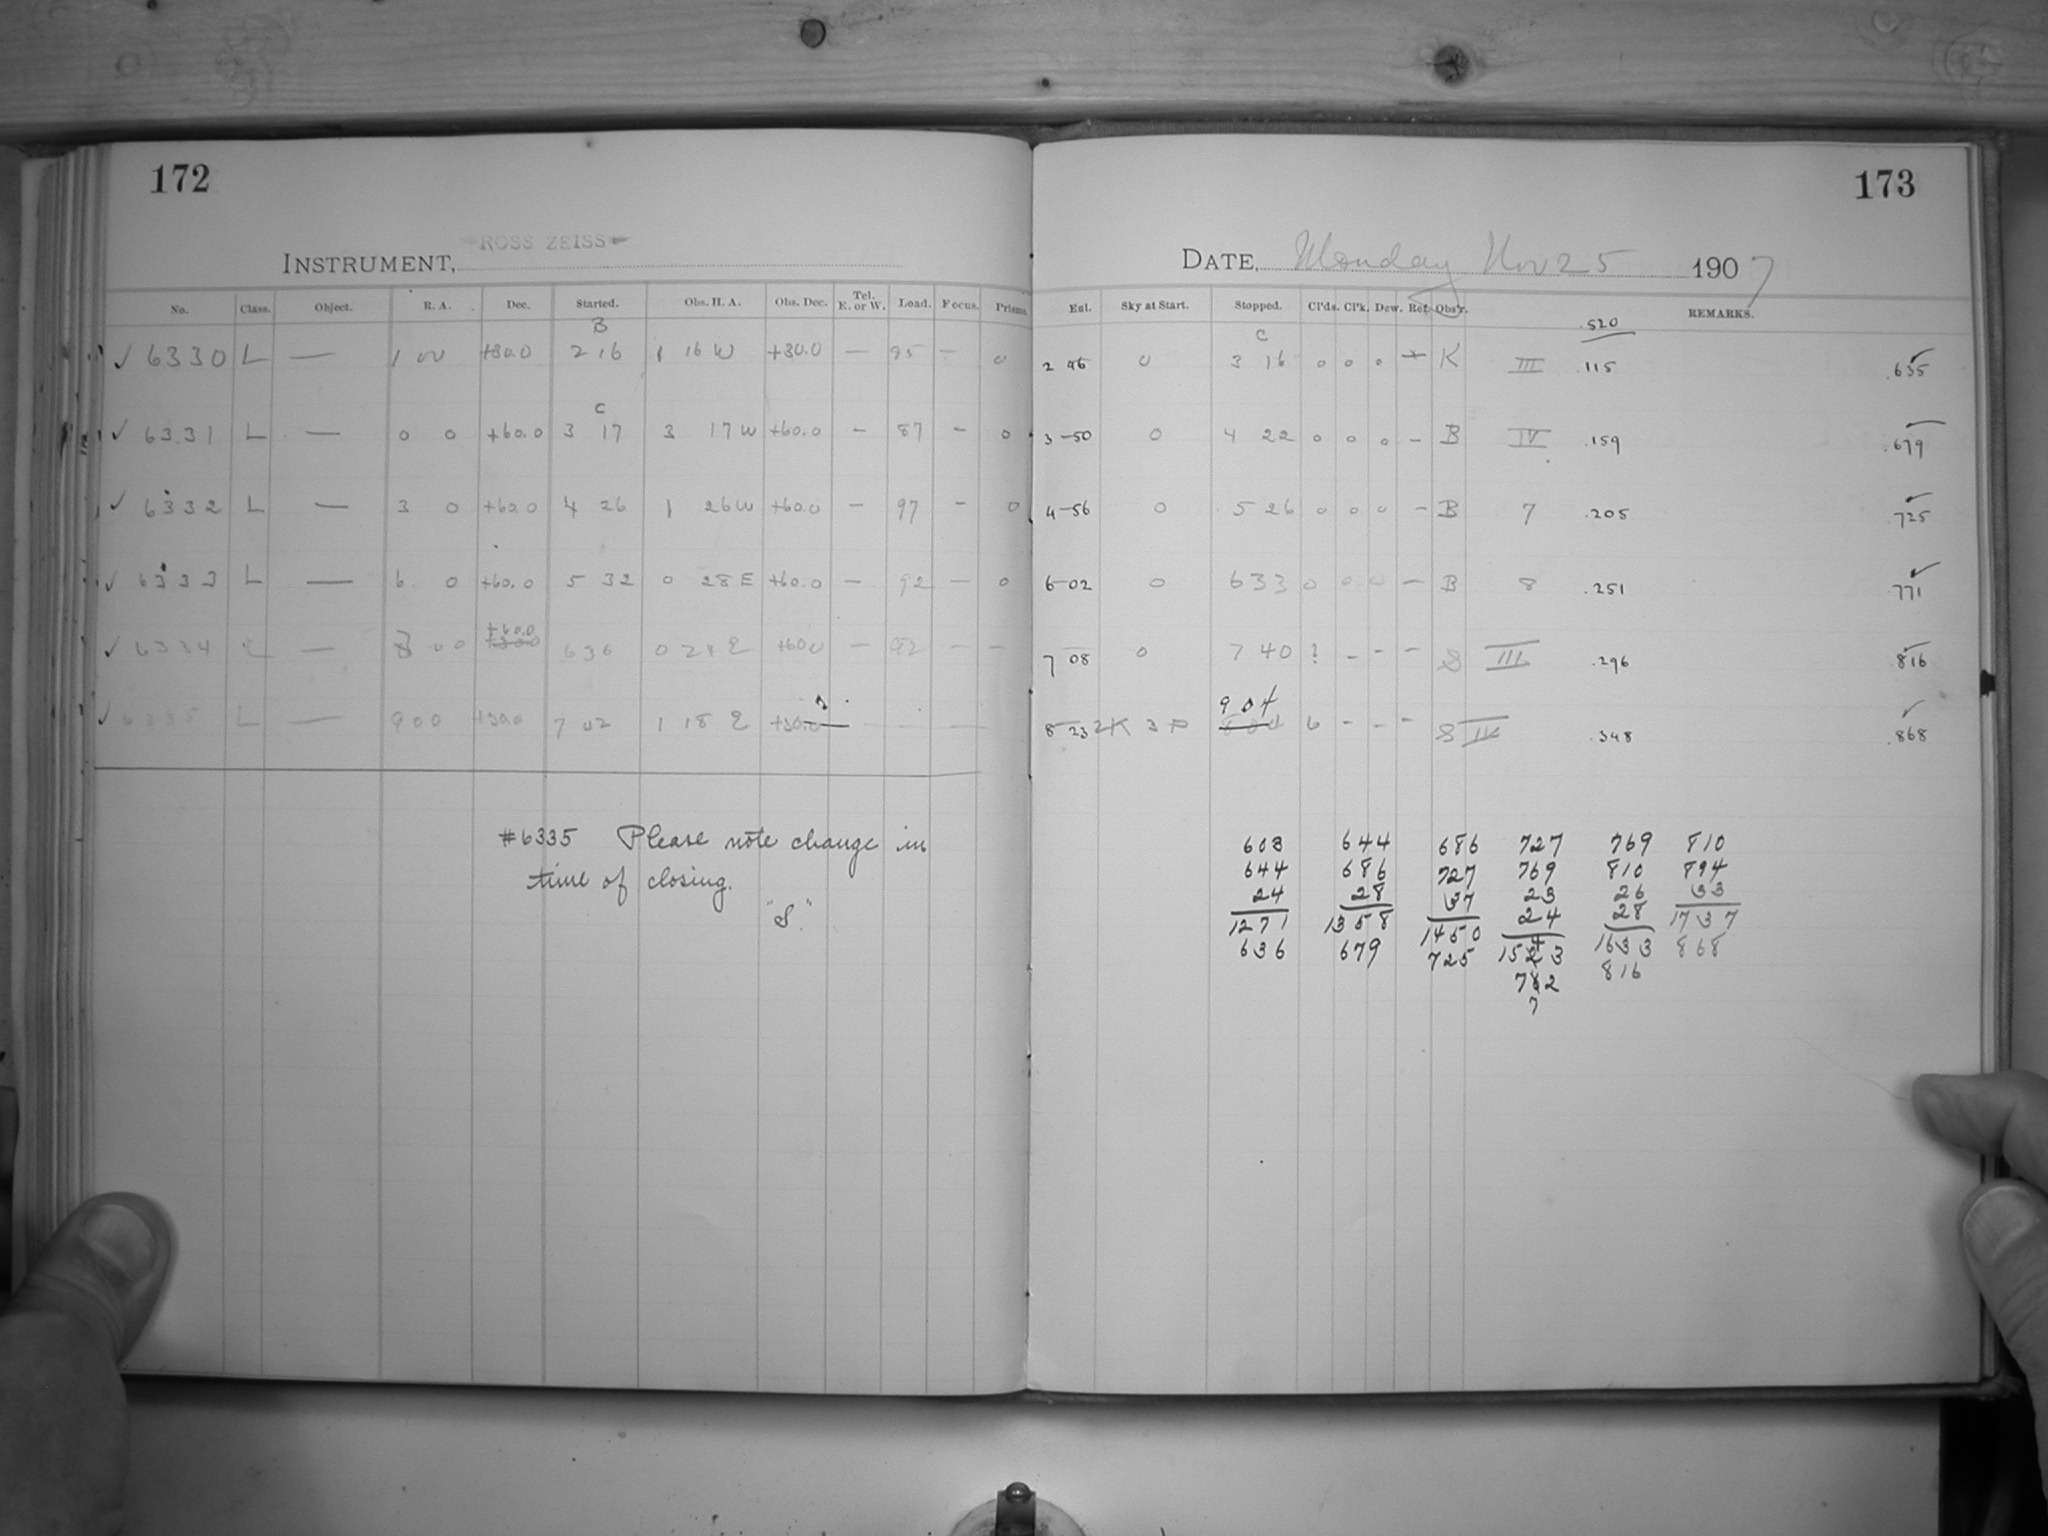 172
173
ROSS ZEISS
INSTRUMENT,
DATE, Monday Nov 25 1907
No. Class. Object. R. A. Dec. Started. Obs. H. A. Obs. Dec. Tel. E. or W. Load. Focus. Prisms. Eul. Sky at Start. Stopped. Cl'ds. Cl'k. Dew. Ref. Obs'r. REMARKS.
B C .520
✓ 6330 L — 1 00 +30.0 2 16 1 16 W +30.0 — 95 — 0 2 46 0 3 16 0 0 0 — K III .115 .635 ✓
C
✓ 6331 L — 0 0 +60.0 3 17 3 17 W +60.0 — 87 — 0 3-50 0 4 22 0 0 0 — B IV .159 .679
✓ 6332 L — 3 0 +60.0 4 26 1 26 W +60.0 — 97 — 0 4-56 0 5 26 0 0 0 — B 7 .205 .725
✓ 6333 L — 6 0 +60.0 5 32 0 28 E +60.0 — 92 — 0 6-02 0 6 33 0 0 0 — B 8 .251 .771 ✓
+60.0
✓ 6334 L — 8 00 636 0 24 E +60.0 — 92 — — 7 08 0 7 40 ? - - - S III .296 .816
904
✓ 6335 L — 9 00 +30.0 7 02 1 18 E +30.0 — 8 23 2K 3 P 6 - - - S IV .348 .868 ✓
#6335 Please note change in
time of closing.
"S."
603 644 686 727 769 810
644 686 727 769 810 894
24 28 37 23 26 33
1271 1358 1450 24 28 1737
636 679 725 1543 1633 868
772 816